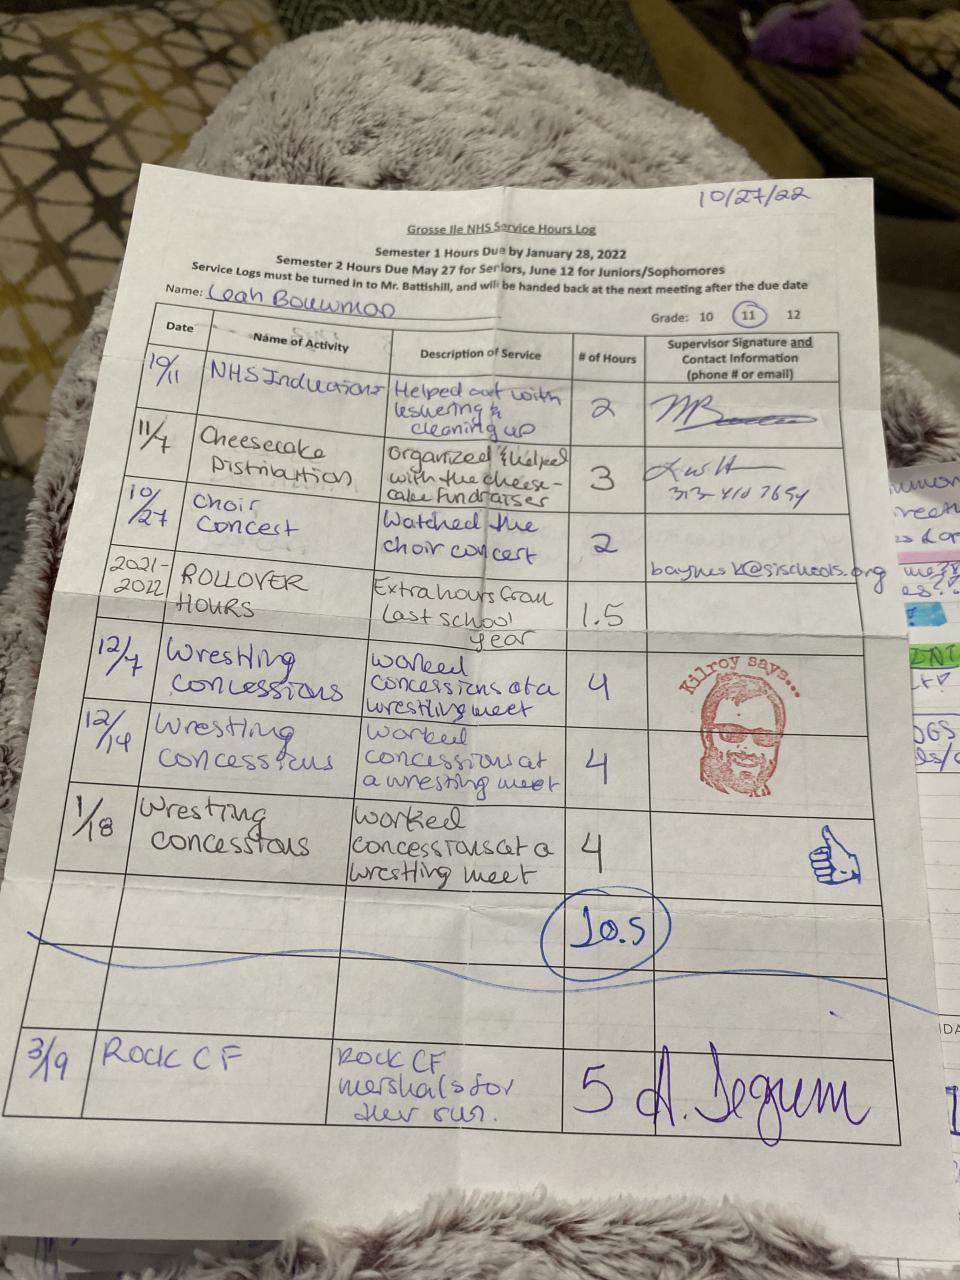 10/27/22
Grosse Ile NHS Service Hours Log
Semester 1 Hours Due by January 28, 2022
Semester 2 Hours Due May 27 for Seniors, June 12 for Juniors/Sophomores
Service Logs must be turned in to Mr. Battishill, and will be handed back at the next meeting after the due date
Name: Leah Bouwman
Grade: 10 11 12
Date
Name of Activity
Description of Service
# of Hours
Supervisor Signature and
Contact Information
(phone # or email)
10/11
NHS Inductions
Helped out with
ushering &
cleaning up
2
11/7
Cheesecake
Distribution
Organized & helped
with the cheese-
cake fundraiser
3
313-410 7654
10/27
Choir
Concert
Watched the
choir concert
2
2021-
2022
ROLLOVER
HOURS
Extra hours from
last school
year
1.5
12/7
Wrestling
concessions
worked
concessions at a
wrestling meet
4
Kilroy says...
12/14
Wrestling
concessions
worked
concessions at
a wrestling meet
4
1/18
Wrestling
concessions
worked
concessions at a
wrestling meet
4
20.5
3/19
Rock CF
Rock CF
mershals for
their run.
5
A. Jegum